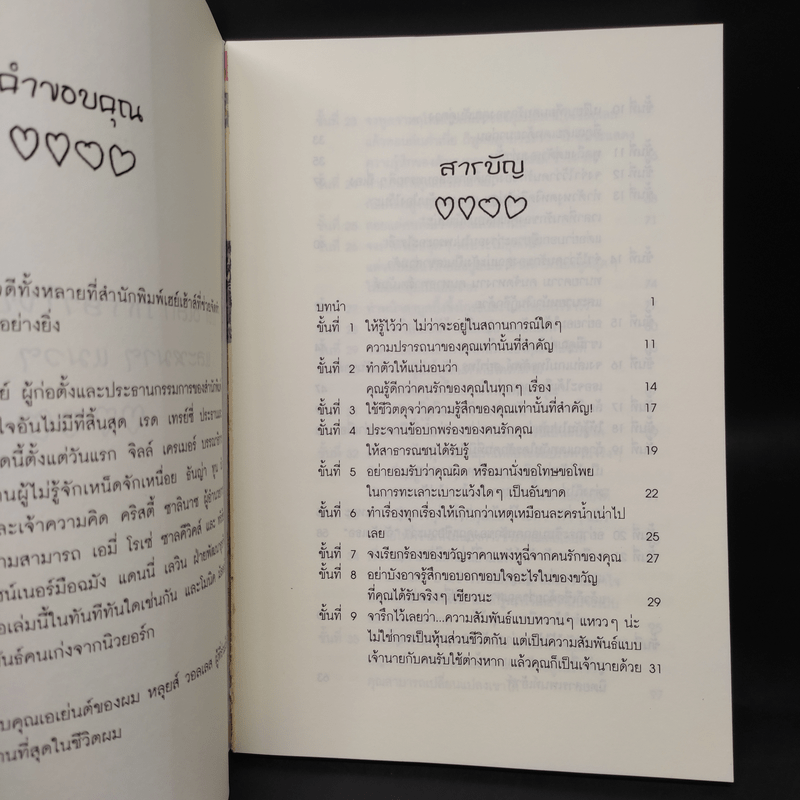 คำขอบคุณ
ดีทั้งหลายที่สำนักพิมพ์เฮย์เฮ้าส์ที่ช่วย
อย่างยิ่ง
ย์ ผู้ก่อตั้งและประธานกรรมการของสำนัก
ใจอันไม่มีที่สิ้นสุด เรด เทรย์ซี่ ประธาน
ดนี้ตั้งแต่วันแรก จิลล์ เครเมอร์
านผู้ไม่รู้จักเหน็ดจักเหนื่อย
ละเจ้าความคิด คริสตี้ ซาลินาซ
ามสามารถ เอมี่ โรเซ่
ซน์เนอร์มือฉมัง แดนนี่ เลวิน
อเล่มนี้ในทันทีทันใดเช่นกัน และ
พันธ์คนเก่งจากนิวยอร์ก
บคุณเอเย่นต์ของผม หลุยส์ วอลเลส
านที่สุดในชีวิตผม
สารบัญ
บทนำ 1
ขั้นที่ 1 ให้รู้ไว้ว่า ไม่ว่าจะอยู่ในสถานการณ์ใดๆ
ความปรารถนาของคุณเท่านั้นที่สำคัญ 11
ขั้นที่ 2 ทำตัวให้แน่นอนว่า
คุณรู้ดีกว่าคนรักของคุณในทุกๆ เรื่อง 14
ขั้นที่ 3 ใช้ชีวิตดุจว่าความรู้สึกของคุณเท่านั้นที่สำคัญ! 17
ขั้นที่ 4 ประจานข้อบกพร่องของคนรักคุณ
ให้สาธารณชนได้รับรู้ 19
ขั้นที่ 5 อย่ายอมรับว่าคุณผิด หรือมานั่งขอโทษขอโพย
ในการทะเลาะเบาะแว้งใดๆ เป็นอันขาด 22
ขั้นที่ 6 ทำเรื่องทุกเรื่องให้เกินกว่าเหตุเหมือนละครน้ำเน่าไป
เลย 25
ขั้นที่ 7 จงเรียกร้องของขวัญราคาแพงหูฉี่จากคนรักของคุณ 27
ขั้นที่ 8 อย่าบังอาจรู้สึกขอบอกขอบใจอะไรในของขวัญ
ที่คุณได้รับจริงๆ เชียวนะ 29
ขั้นที่ 9 จารึกไว้เลยว่า...ความสัมพันธ์แบบหวานๆ แหววๆ น่ะ
ไม่ใช่การเป็นหุ้นส่วนชีวิตกัน แต่เป็นความสัมพันธ์แบบ
เจ้านายกับคนรับใช้ต่างหาก แล้วคุณก็เป็นเจ้านายด้วย 31